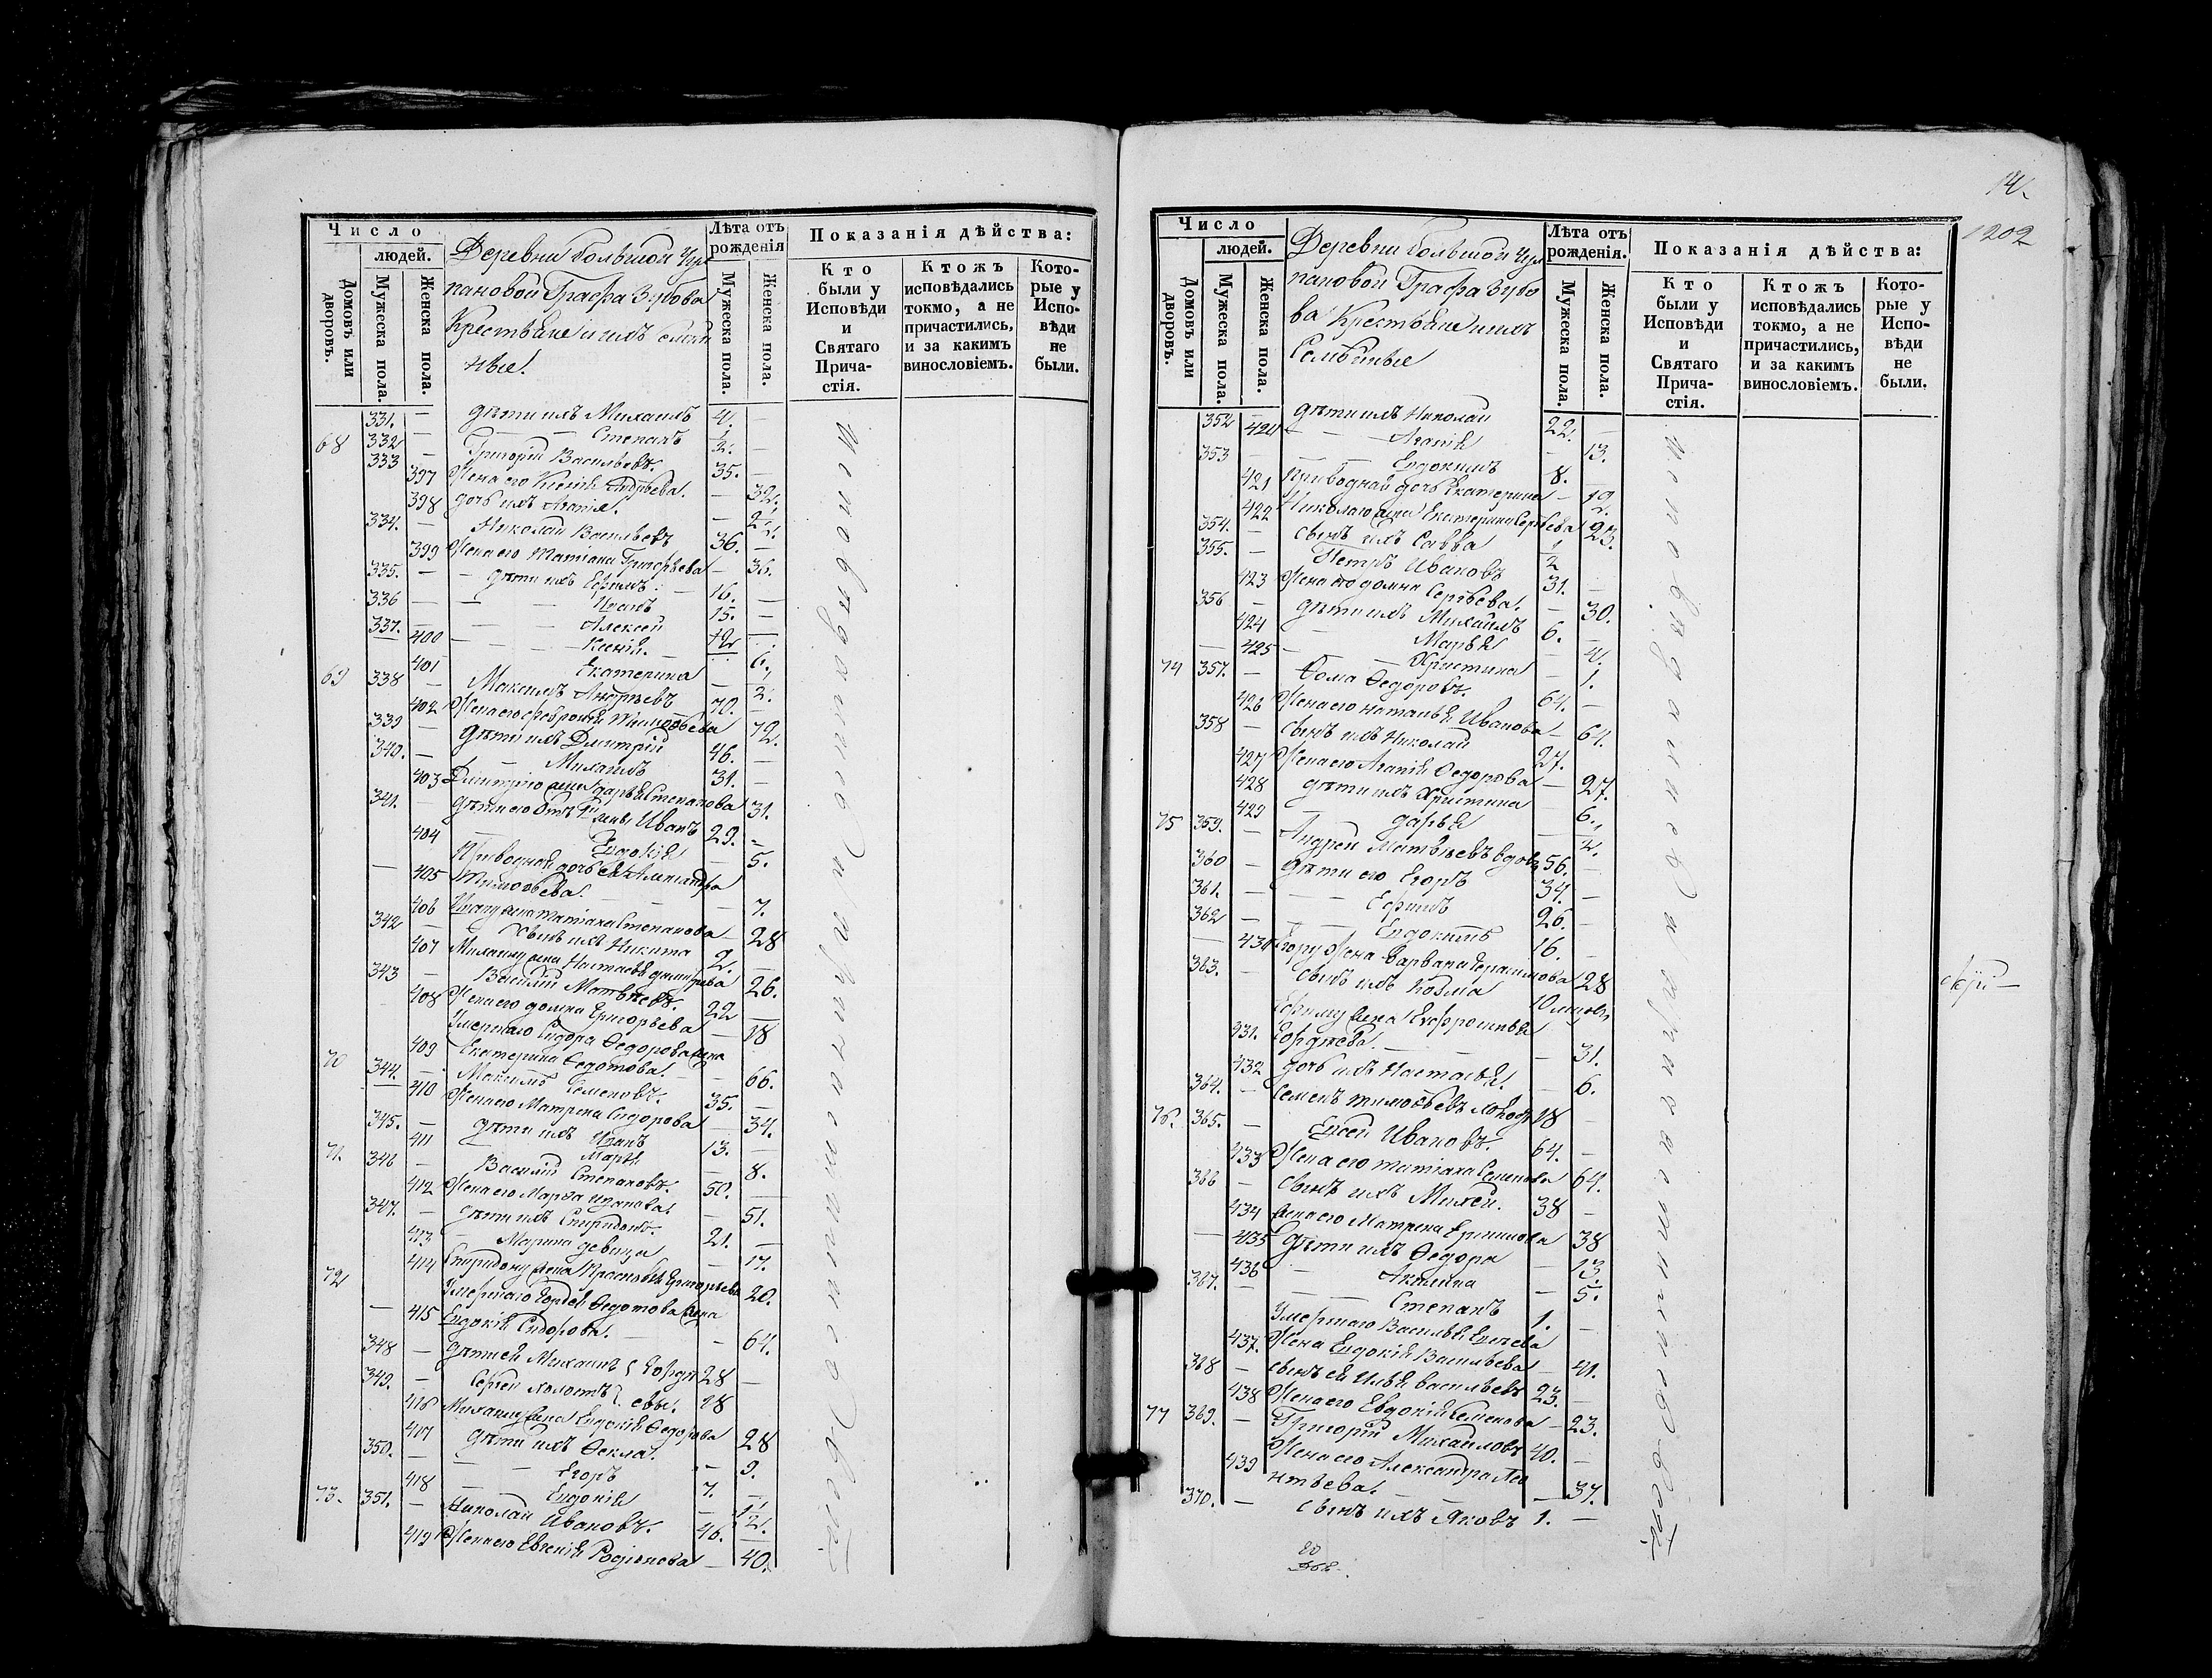 Число
людей.
Домовъ или дворовъ.
Мужеска пола.
Женска пола.
Деревни Большой Чур
пановой Графа Зубова
Крестьяне и ихъ семей
ные.
Лѣта отъ рожденія
Мужеска пола.
Женска пола.
Показанія дѣйства:
Кто были у Исповѣди и Святаго Прича-стія.
Ктожъ исповѣдались токмо, а не причастились, и за какимъ винословіемъ.
Кото-рые у Испо-вѣди не были.
331. — дѣти ихъ Михаилъ 4. —
332 — Степанъ 1/2. —
68 333 — Григорій Васильевъ. 35. —
397 Жена его Ксенія Андреева. — 32.
398 дочь ихъ Агапія. — 2 1/2.
334. — Николай Васильевъ 36. —
399 Жена его Татіана Григорьева — 36.
335. — дѣти ихъ Ефимъ 16. —
336 — Иванъ 15. —
337. — Алексей 12 —
400 — Ксенія. — 6.
401 Екатерина — 2.
69 338 — Максимъ Андреевъ 70. —
402 Жена его Февронія Тимофѣева 72.
339 — дѣти ихъ Дмитрій 46. —
340. — Михаилъ 31. —
403 Дмитрію жена Дарья Степанова 31.
341. — дѣти его отъ 1й жены Иванъ 29. —
404 Евдокія — 5.
Приводная дочь ея Александра
405 Тимофѣева. — 7.
406 Ивану жена Татіана Степанова — 28
342 — сынъ ихъ Никита 2. —
407 Михаилу жена Настасья Дмитрева 26.
343 — Василій Матвѣевъ. 22 —
408 Жена его Домна Григорьева — 18
Умершаго Сидора Федорова жена
409 Екатерина Федотова. — 66.
70 344. — Максимъ Семеновъ. 35. —
410 Жена его Матрена Сидорова — 34.
345. — дѣти ихъ Иванъ 13. —
411 Марья — 8.
71. 346 — Василій Степановъ. 50. —
412 Жена его Марфа Иванова. — 51.
347. — дѣти ихъ Спиридонъ. 21. —
413 — Марина девица — 17.
414 Спиридону жена Прасковья Григорьева 20.
72 Умершаго Гордея Федотова жена
415 Евдокія Сидорова. — 64.
348 — дѣти ея Михаилъ } Горде 28 —
349. — Сергей холостъ } евы. 18
416 Михаилу жена Евдокія Федорова 28
417 дѣти ихъ Фекла. — 9.
350. — Егоръ 7. —
418 Евдокія — 1/2.
73. 351. — Николай Ивановъ. 46. —
419 Жена его Евгенія Родіонова — 40.
14.
1202
Число
людей.
Домовъ или дворовъ.
Мужеска пола.
Женска пола.
Деревни Большой Чур
пановой Графа Зубо
ва Крестьяне и ихъ
Семейные
Лѣта отъ рожденія.
Мужеска пола.
Женска пола.
Показанія дѣйства:
Кто были у Исповѣди и Святаго Прича-стія.
Ктожъ исповѣдались токмо, а не причастились, и за какимъ винословіемъ.
Кото-рые у Испо-вѣди не были.
352 — дѣти ихъ Николай 22. —
420 — Агапія — 13.
353 — Евдокимъ 8. —
421 Приводная дочь Екатерина — 12.
422 Николаю жена Екатерина Сергѣева 23.
354. — сынъ ихъ Савва 1/2
355. — Петръ Ивановъ 31. —
423 Жена его Домна Сергѣева. — 30.
356 — дѣти ихъ Михаилъ 6. —
424 — Марья — 4.
425 — Христина — 1.
74 357. — Фома Федоровъ. 64. —
426 Жена его Наталья Иванова — 64.
358 — сынъ ихъ Николай 27. —
427 Жена его Агапія Федорова — 27.
428 дѣти ихъ Христина — 6.
429 Дарья — 2.
75 359. — Андрей Матвѣевъ вдовъ 56. —
360 — дѣти его Егоръ 34. —
361. — Ефимъ 26. —
362 — Евдокимъ 16. —
430 Егору жена Варвара Герасимова 28
363. — сынъ ихъ Козма 10
Ефиму жена Евфросинья
431. Гордѣева. — 31.
432 дочь ихъ Настасья. — 6.
364. — Семенъ Тимофѣевъ холостъ 18 —
76. 365. — Евсей Ивановъ. 64. —
433 Жена его Татіана Семенова 64.
366 — сынъ ихъ Михей. 38 —
434 жена его Матрена Ермилова 38
435 дѣти ихъ Федора — 13.
436 — Акилина — 5.
367. — Степанъ 1. —
Умершаго Василья Евсеева
437. Жена Евдокія Васильева — 41.
368 — сынъ ея Илья Васильевъ 23. —
438 Жена его Евдокія Семенова — 23.
77 369. — Григорій Михайловъ 40. —
439 Жена его Александра Лео
нтьева. — 37.
370. — сынъ ихъ Яковъ 1. —